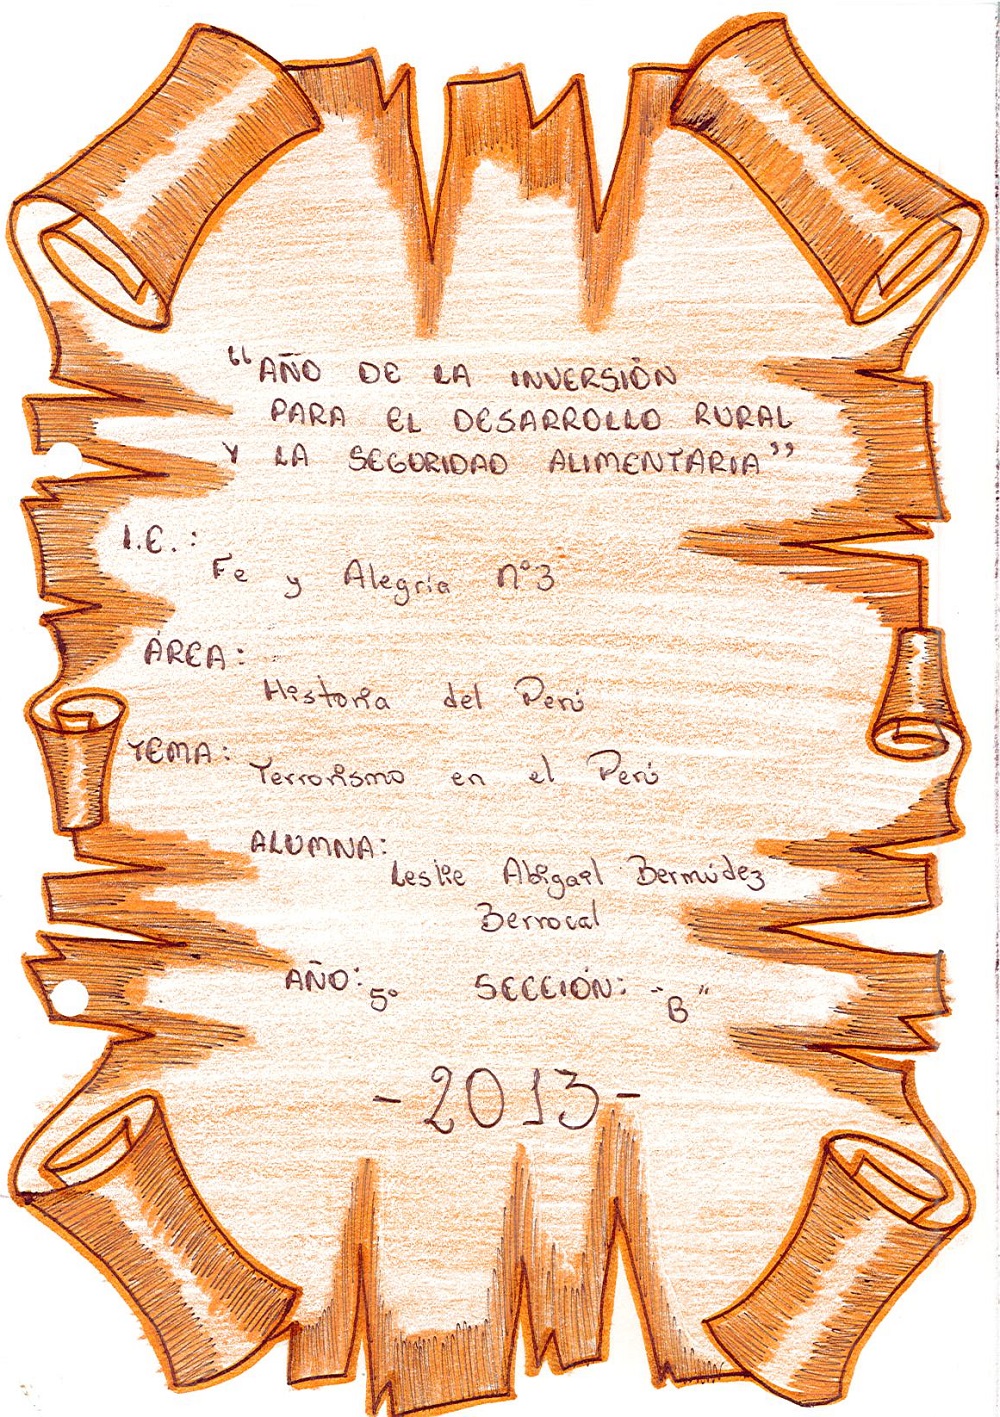 “AÑO DE LA INVERSIÓN
PARA EL DESARROLLO RURAL
Y LA SEGURIDAD ALIMENTARIA”
I.E.:
Fe y Alegría n°3
ÁREA:
Historia del Perú
TEMA:
Terrorismo en el Perú
ALUMNA:
Leslie Abigail Bermúdez
Berrocal
AÑO: 5° SECCIÓN: "B"
-2013-